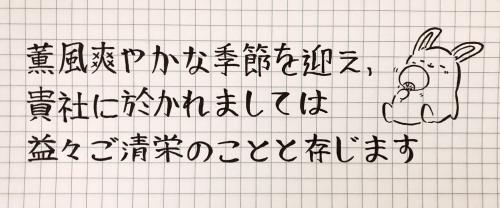 薫風爽やかな季節を迎え,
貴社に於かれましては
益々ご清栄のことと存じます